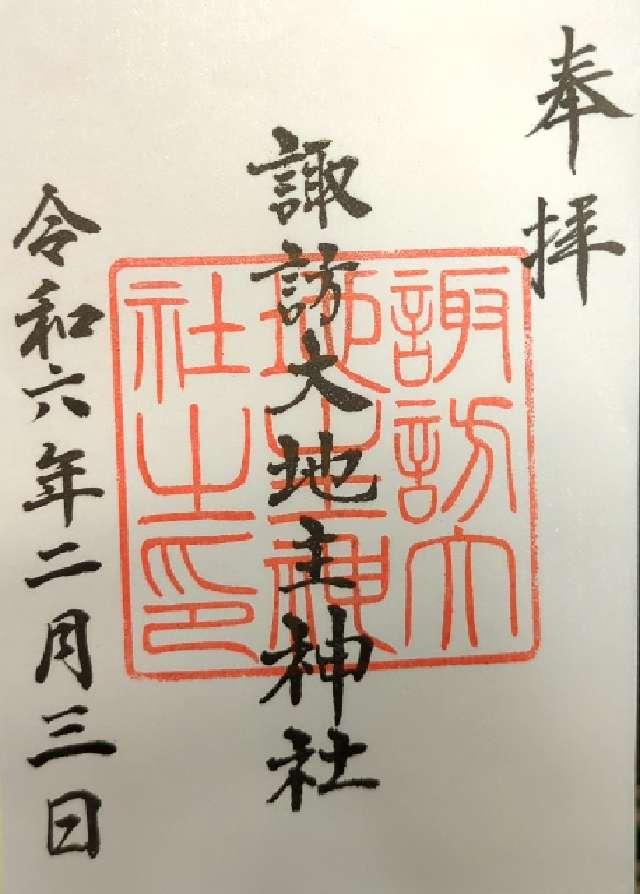 奉拝
諏訪大地主神社
諏訪大
地主神
社之印
令和六年二月三日